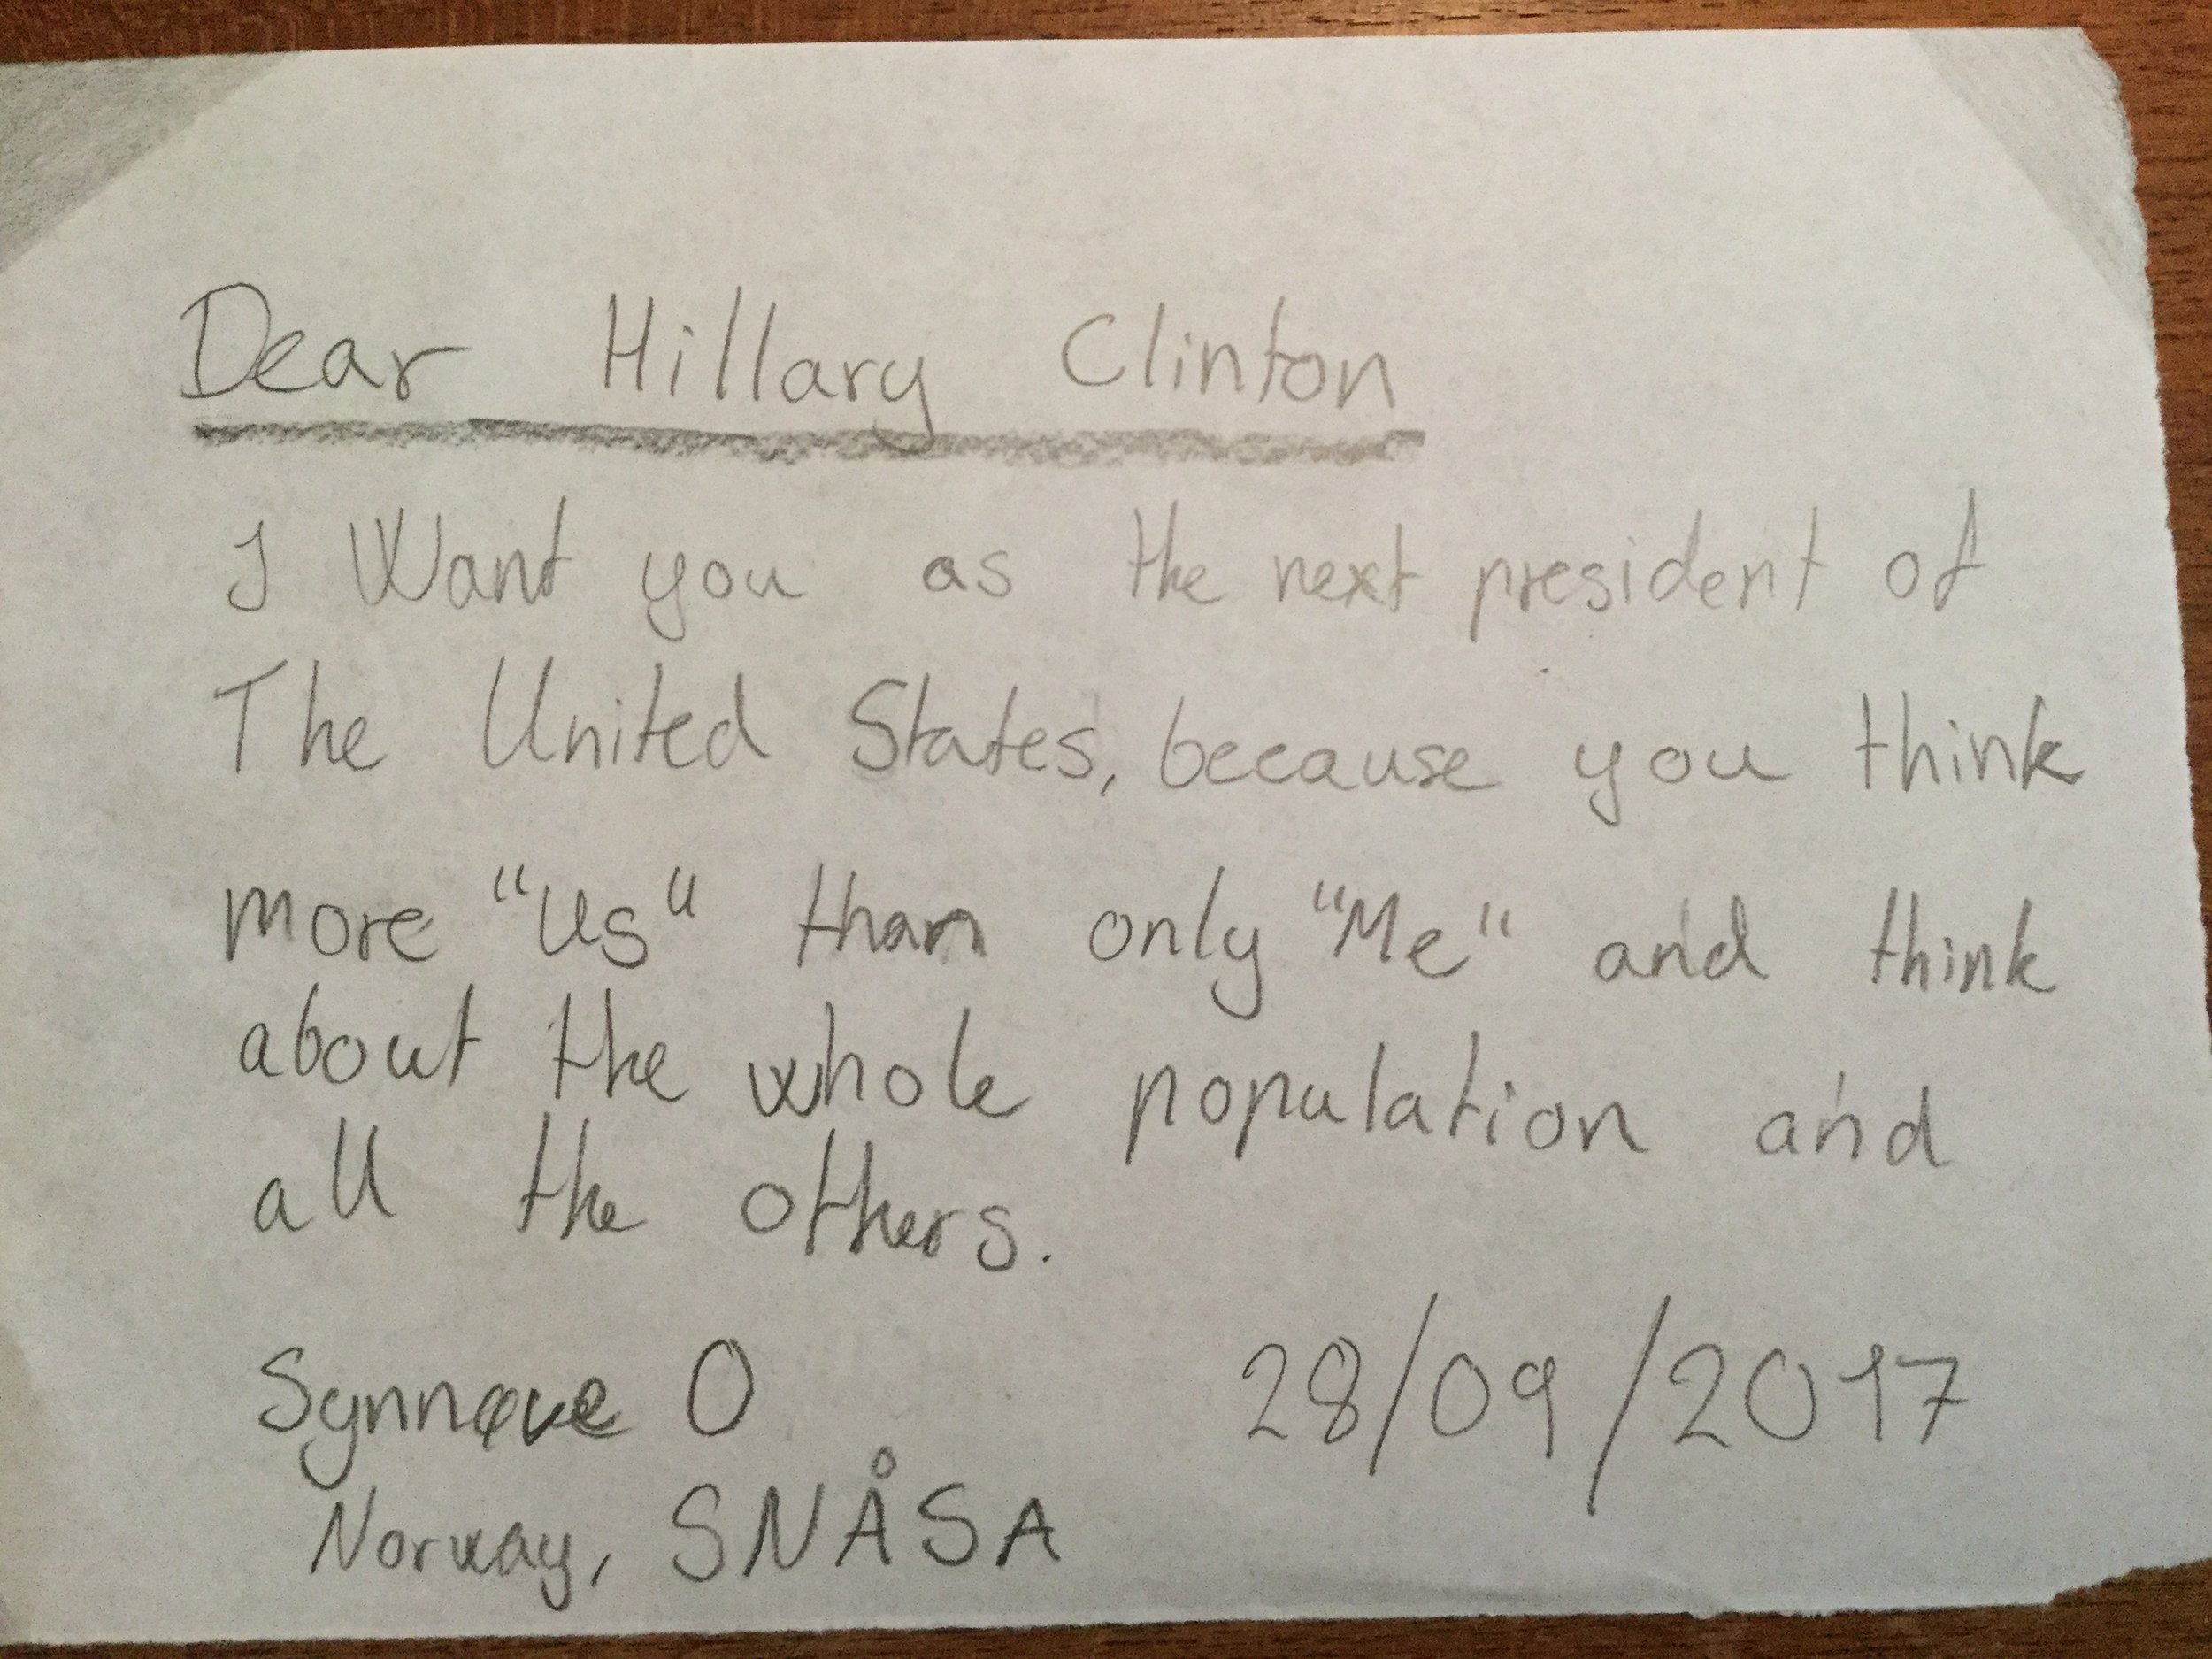 Dear Hillary Clinton
I Want you as the next president of
The United States, because you think
more "Us" than only "Me" and think
about the whole population and
all the others.
Synnøve O 28/09/2017
Norway, SNÅSA